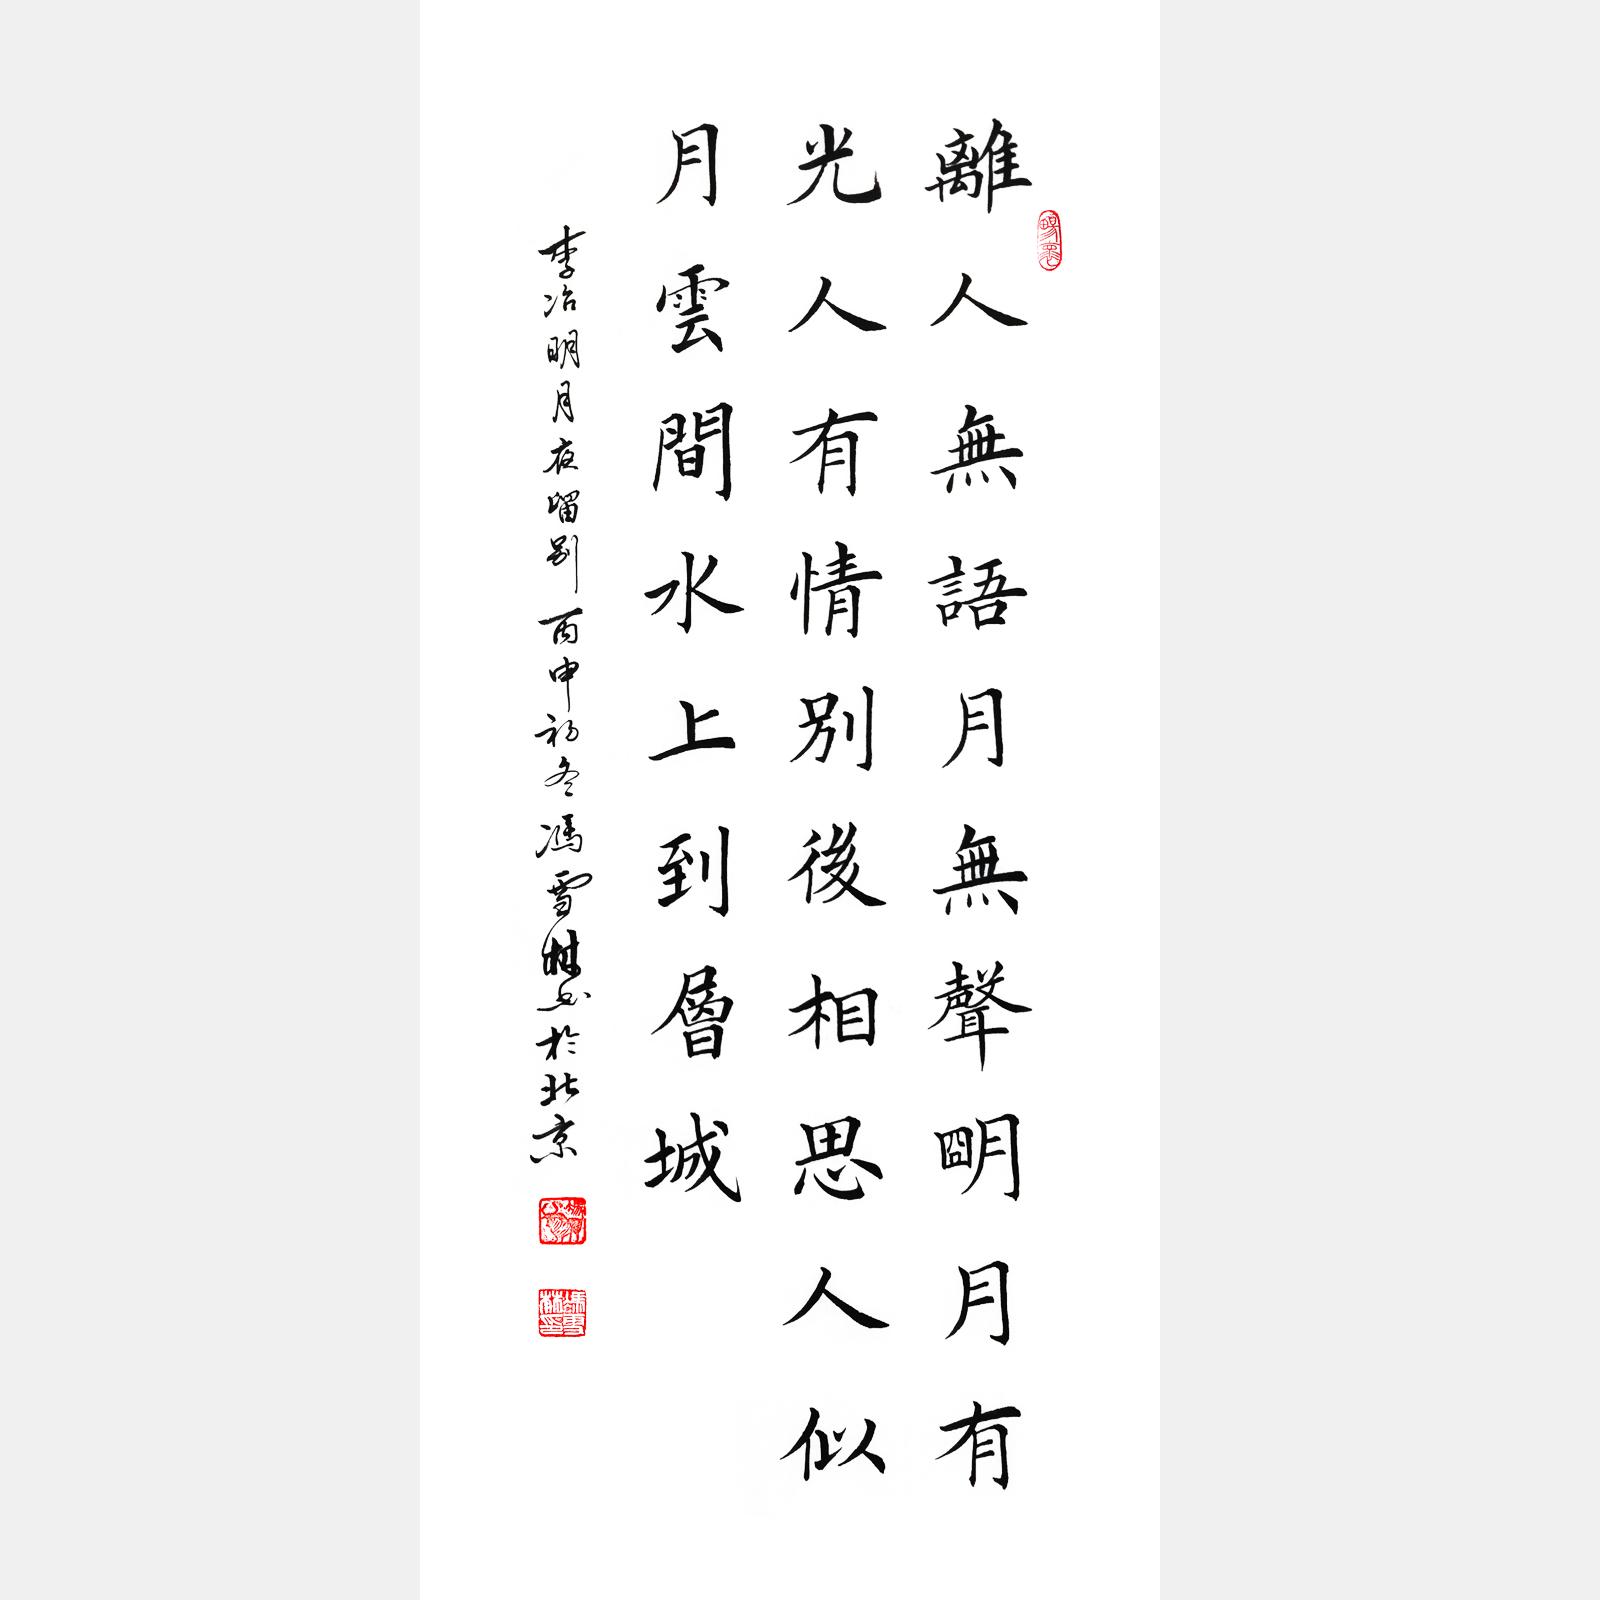 離人無語月無聲明月有
光人有情別後相思人似
月雲間水上到層城
李冶明月夜留別丙申初冬馮雪林書於北京